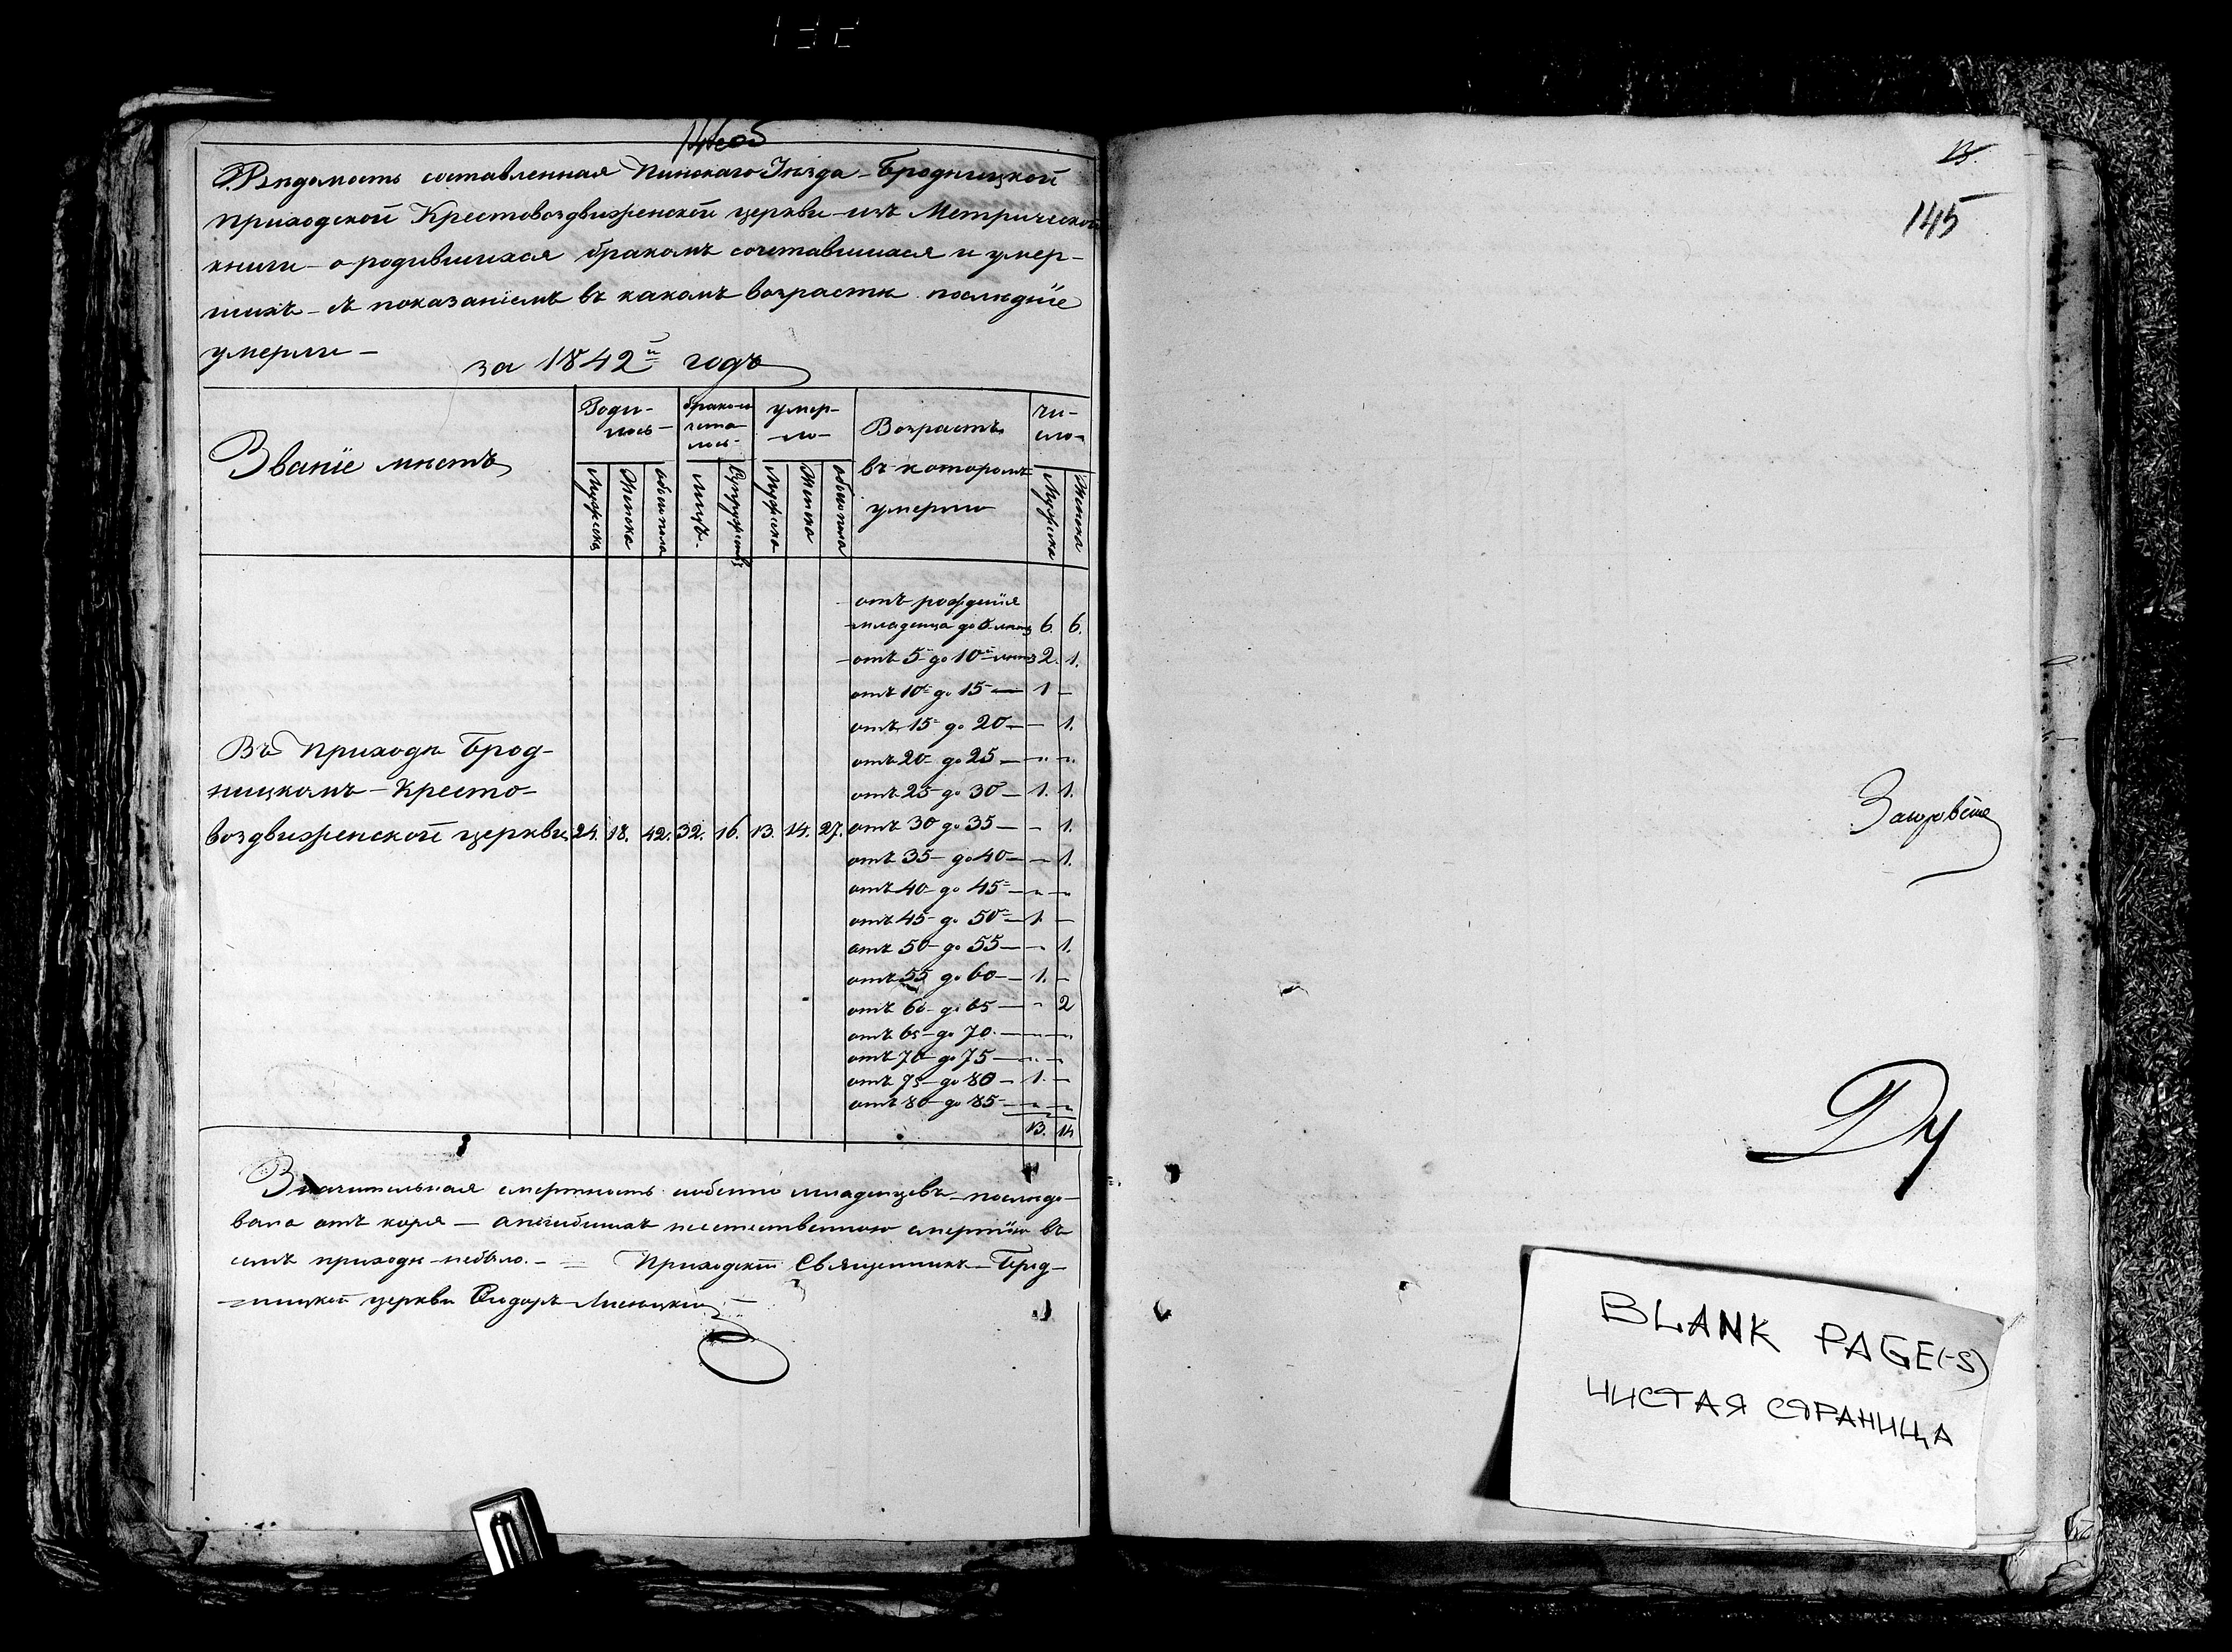 Вѣдомость составленная Пинскаго Уѣзда – Бродницкой
приходской Крестовоздвиженской церкви – изъ Метрической
книги – о родившихся бракомъ сочетавшихся и умер–
шихъ – съ показаніемъ въ какомъ возрастѣ последніе
умерли –
за 1842й годъ
Званіе мѣстъ
Роди–лось–
бракомъ чета лось–
умер–ло–
Возрастъ въ которомъ умерло
чи–сло–
Мужеска Женска обоего пола Лицъ. Супружествъ Мужеска Женска обоего пола Мужеска Женска
отъ рожденія
младенца до 5 летъ 6. 6.
отъ 5 до 10 летъ 2. 1.
отъ 10 до 15 — 1 –
отъ 15 до 20 — – 1.
отъ 20 до 25 — „ „
отъ 25 до 30 — 1. 1.
Въ приходѣ Брод–
ницкомъ – Кресто–
воздвиженской церкви 24. 18. 42. 32. 16. 13. 14. 27. отъ 30 до 35 — – 1.
отъ 35 – до 40 — – 1.
отъ 40 – до 45 — „ „
отъ 45 – до 50 — 1. –
отъ 50 – до 55 — – 1.
отъ 55 до 60 — 1. –
отъ 60 – до 65 — „ 2
отъ 65 – до 70. — „ „
отъ 70 – до 75 — „ „
отъ 75 – до 80 – 1. –
отъ 80 – до 85 — „ „
13. 14
Значительная смертность особенно младенцевъ – последо–
вала отъ коря — а погибшихъ неестественною смертію въ
семъ приходѣ – небыло. – = Приходскій Священникъ – Брод–
ницкой церкви Ѳеодоръ Лисицкій
145
Ду
BLANK PAGE(-S)
ЧИСТАЯ СТРАНИЦА